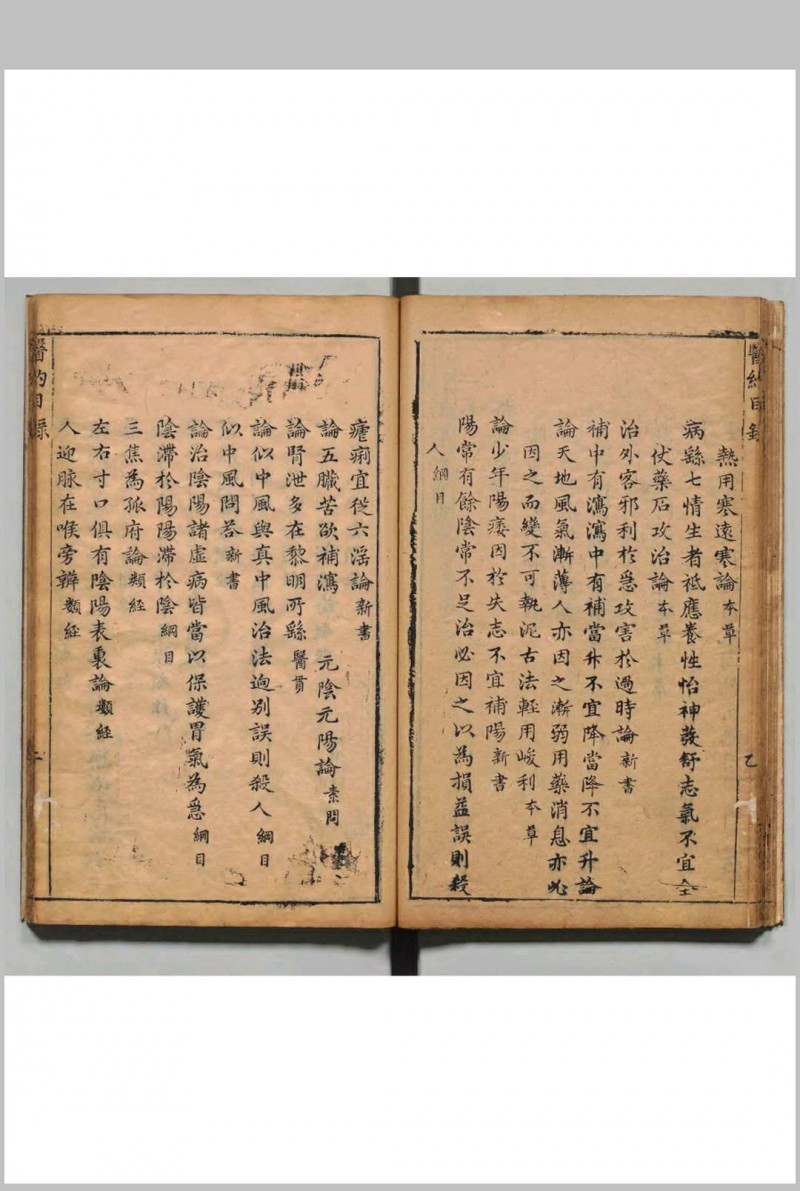 醫約目錄
熱用寒遠寒論本草
病繇七情生者祗應養性怡神發舒志氣不宜全
仗藥石攻治論本草
治外客邪利於急攻害於過時論新書
補中有瀉瀉中有補當升不宜降當降不宜升論
論天地風氣漸薄人亦因之漸弱用藥消息亦必
因之而變不可執泥古法輕用峻利本草
論少年陽痿因於失志不宜補陽新書
陽常有餘陰常不足治必因之以為損益誤則殺
人綱目
瘧痢宜從六淫論新書
論五臟苦欲補瀉 元陰元陽論素問
論腎泄多在黎明所繇醫貫
論似中風與真中風治法迥別誤則殺人綱目
似中風問答新書
論治陰陽諸虛病皆當以保護胃氣為急綱目
陰滯於陽陽滯於陰綱目
三焦為孤府論類經
左右寸口俱有陰陽表裏論類經
人迎脉在喉旁辨類經
醫約目錄